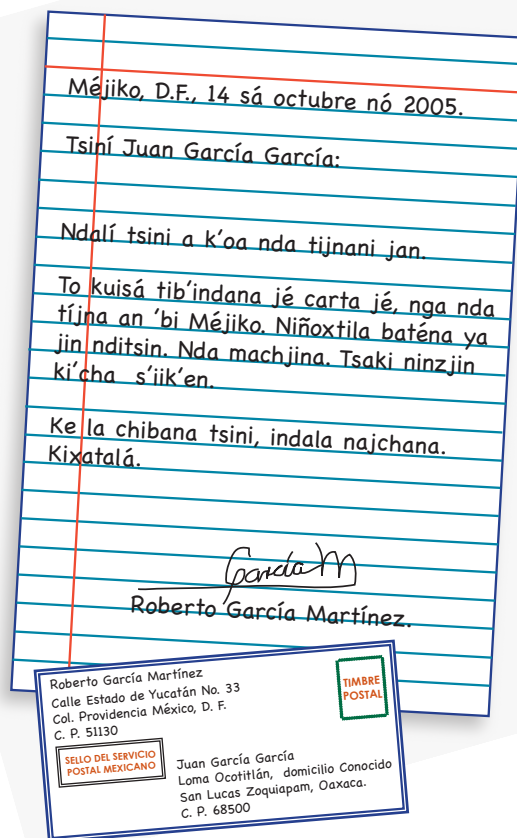 Méjiko, D.F., 14 sá octubre nó 2005.
Tsiní Juan García García:
Ndalí tsini a k'oa nda tijnani jan.
To kuisá tib'indana jé carta jé, nga nda
tíjna an 'bi Méjiko. Niñoxtila baténa ya
jin nditsin. Nda machjina. Tsaki ninzjin
ki'cha s'iik'en.
Ke la chibana tsini, indala najchana.
Kixatalá.
García M
Roberto García Martínez.
Roberto García Martínez
Calle Estado de Yucatán No. 33
Col. Providencia México, D. F.
C. P. 51130
TIMBRE
POSTAL
SELLO DEL SERVICIO
POSTAL MEXICANO
Juan García García
Loma Ocotitlán, domicilio Conocido
San Lucas Zoquiapam, Oaxaca.
C. P. 68500